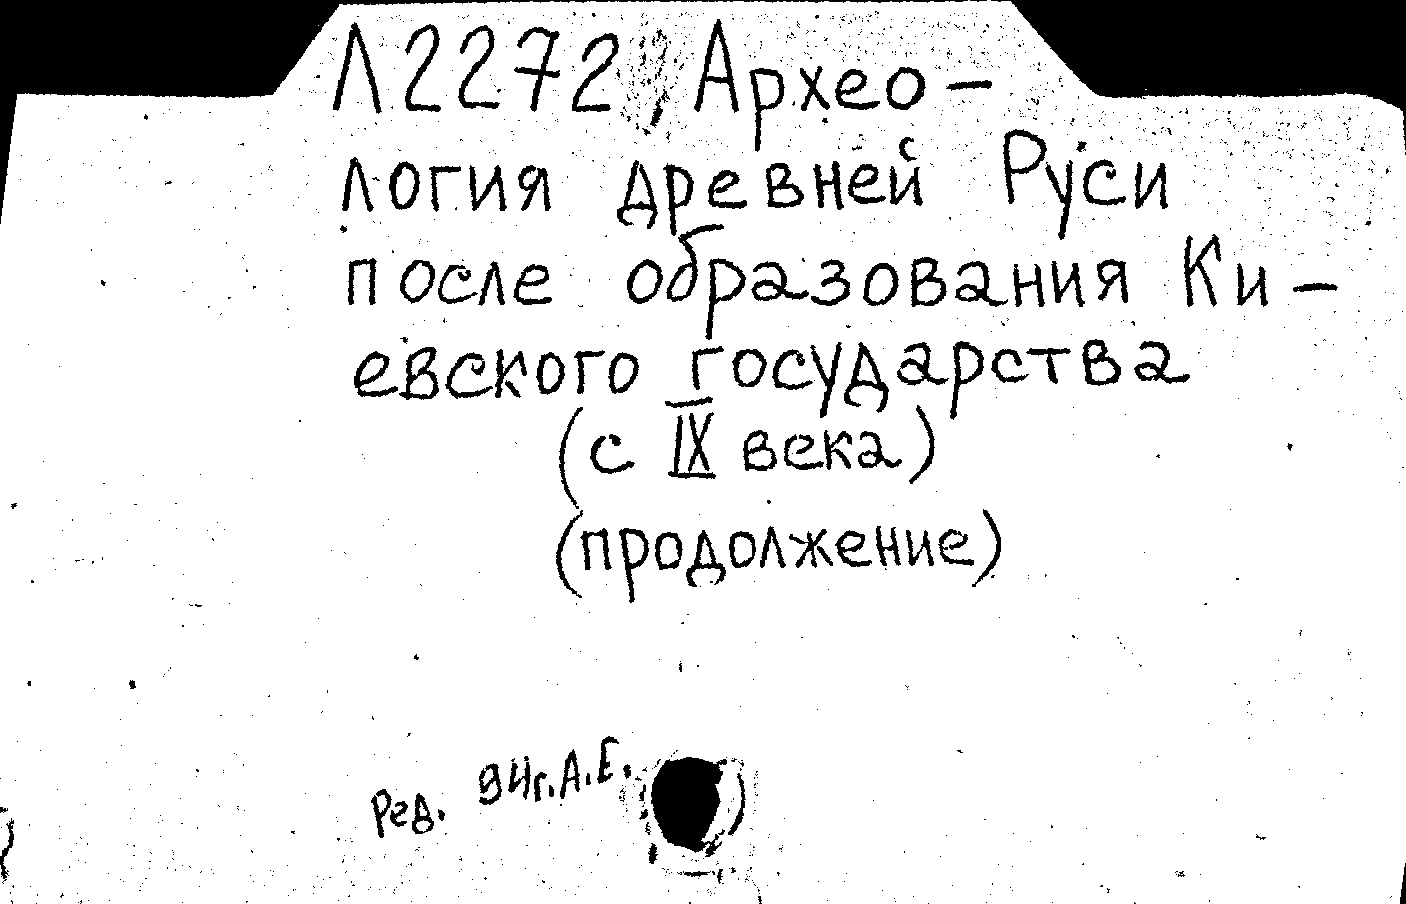 Л2272 Архео-
логия древней Руси
после образования Ки-
евского государства
(с IX века)
(продолжение)
Ред. 94г. А.Е.